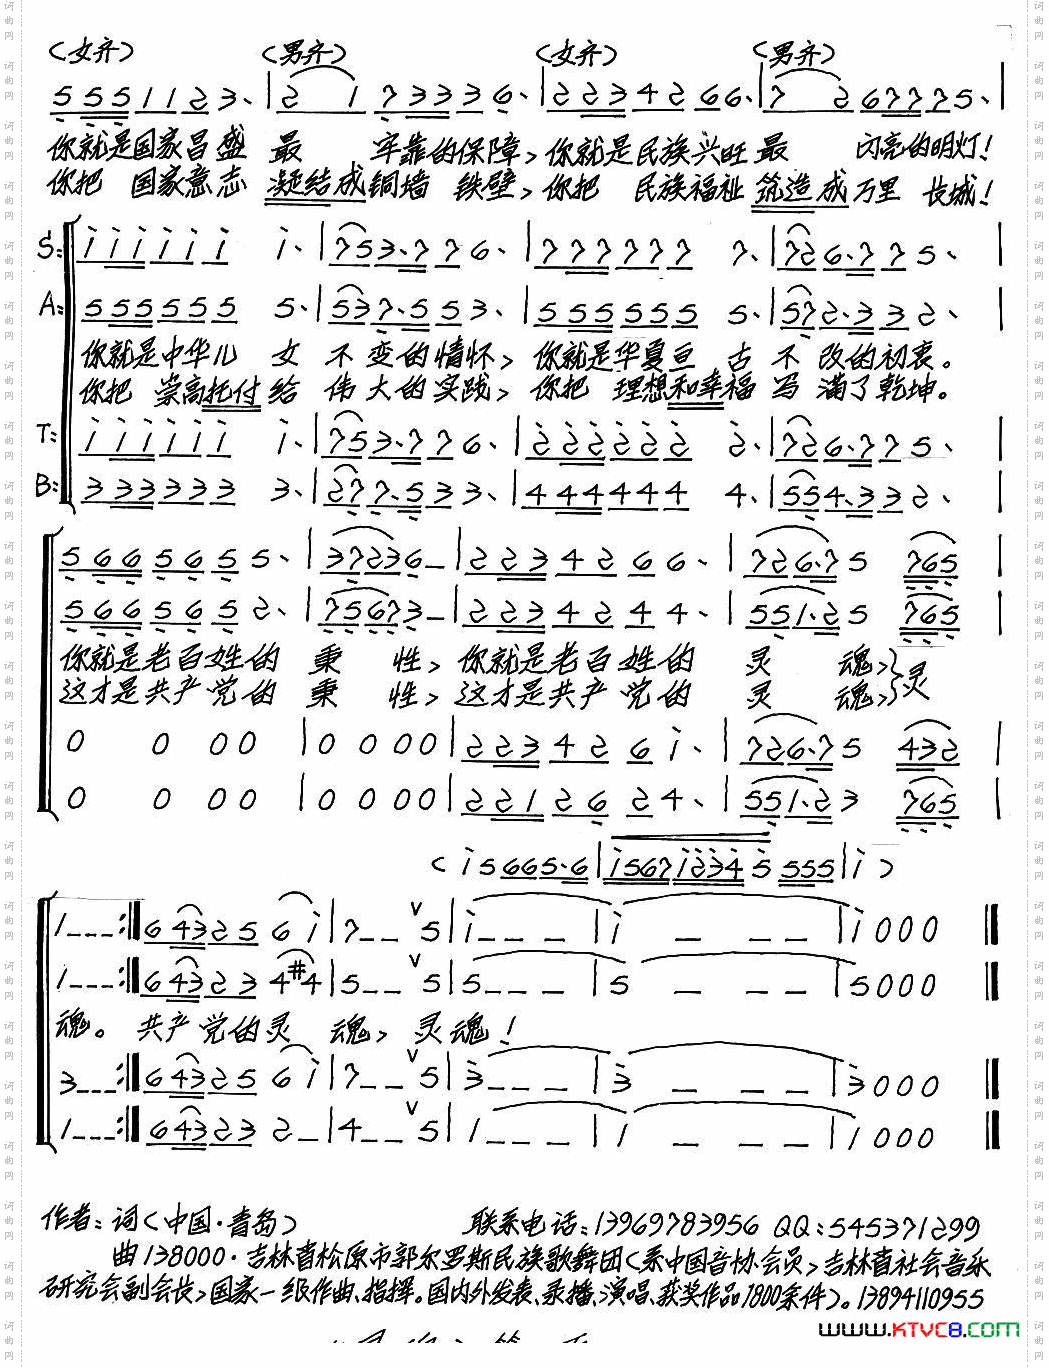 （女齐） （男齐） （女齐） （男齐）
5 5 5 1 1 2 3· | 2 1 7 3 3 3 6· | 2 2 3 4 2 6 6· | 7 2 6 7 7 7 5· |
你就是国家昌盛 最 牢靠的保障，你就是民族兴旺 最 闪亮的明灯！
你把 国家意志 凝结成铜墙 铁壁，你把 民族福祉 筑造成万里 长城！
S: i i i i i i i· | 7 5 3·7 7 6· | 7 7 7 7 7 7 7· | 7 2 6·7 7 5· |
A: 5 5 5 5 5 5 5· | 5 3 7·5 5 3· | 5 5 5 5 5 5 5· | 5 7 2·3 3 2· |
你就是中华儿 女 不 变的情怀，你就是华夏亘 古 不 改的初衷。
你把 崇高托付 给 伟 大的实践，你把 理想和幸福 写 满了乾坤。
T: i i i i i i i· | 7 5 3·7 7 6· | 2 2 2 2 2 2 2· | 7 2 6·7 7 5· |
B: 3 3 3 3 3 3 3· | 2 7 7·5 3 3· | 4 4 4 4 4 4 4· | 5 5 4·3 3 2· |
5 6 6 5 6 5 5· | 3 7 2 3 6 – | 2 2 3 4 2 6 6· | 7 2 6·7 5 7 6 5 |
5 6 6 5 6 5 2· | 7 5 6 7 3 – | 2 2 3 4 2 4 4· | 5 5 1·2 5 7 6 5 |
你就是老百姓的 秉 性，你就是老百姓的 灵 魂，灵
这才是共产党的 秉 性，这才是共产党的 灵 魂，
0 0 0 0 | 0 0 0 0 | 2 2 3 4 2 6 i· | 7 2 6·7 5 4 3 2 |
0 0 0 0 | 0 0 0 0 | 2 2 1 2 6 2 4· | 5 5 1·2 3 7 6 5 |
( i 5 6 6 5·6 | i 5 6 7 i 2 3 4 5 5 5 5 | i )
1 – – – :|| 6 4 3 2 5 6 i | 7 – – V 5 | i – – – | i – – – | i 0 0 0 ||
1 – – – :|| 6 4 3 2 3 4 #4 | 5 – – V 5 | 5 – – – | 5 – – – | 5 0 0 0 ||
魂。 共产 党的灵 魂， 灵 魂！
3 – – – :|| 6 4 3 2 5 6 i | 7 – – V 5 | 3 – – – | 3 – – – | 3 0 0 0 ||
1 – – – :|| 6 4 3 2 3 2 – | 4 – – V 5 | 1 – – – | 1 – – – | 1 0 0 0 ||
作者：词（中国·青岛） 联系电话：13969783956 QQ：545371299
曲138000·吉林省松原市郭尔罗斯民族歌舞团（系中国音协会员，吉林省社会音乐
研究会副会长，国家一级作曲、指挥。国内外发表、录播、演唱、获奖作品1800余件）。13894110955
www.KTVC8.com